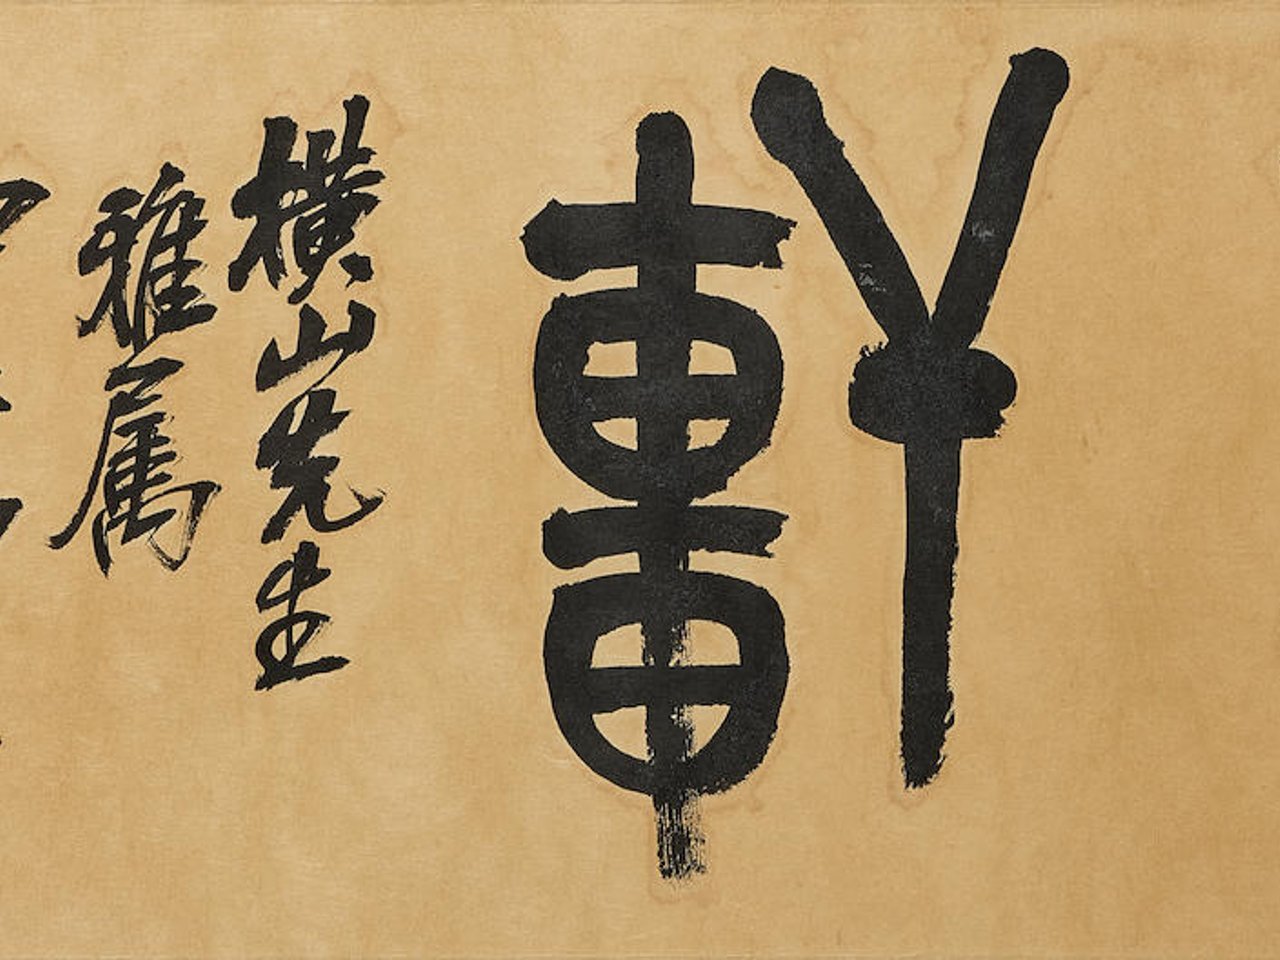 軒
橫山先生
雅属